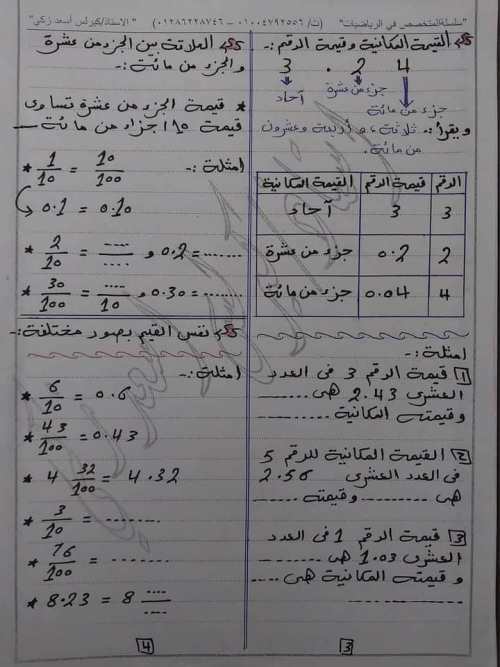 "سلسلة المتخصص في الرياضيات" (ت/ ٠١٠٠٤٧٩٢٥٥٦ – ٠١٢٨٦٢٢٨٧٤٦) "الاستاذ/كيرلس أسعد زكي"
القيمة المكانية وقيمة الرقم :-
3 . 2 4
آحاد
جزء من عشرة
جزء من مائة
ويقرأ :- ثلاثة، و أربعة وعشرون
من مائة.
الرقم قيمة الرقم القيمة المكانية
3 3 آحاد
2 0.2 جزء من عشرة
4 0.04 جزء من مائة
امثلة :-
1 قيمة الرقم 3 فى العدد
العشرى 2.43 هى ........
وقيمته المكانية ........
2 القيمة المكانية للرقم 5
فى العدد العشرى 2.56
هى ........ وقيمته ........
3 قيمة الرقم 1 فى العدد
العشرى 1.03 هى ........
و قيمته المكانية هى ....
........
3
العلاقة بين الجزء من عشرة
والجزء من مائة :-
* قيمة الجزء من عشرة تساوى
قيمة 10 اجزاء من مائة
امثلة :-
* 1/10 = 10/100
0.1 = 0.10
* 2/10 = ..../.... و 0.2 = .......
* 30/100 = ..../10 و 0.30 = .......
نفس القيم بصور مختلفة :-
امثلة :-
* 6/10 = 0.6
* 43/100 = 0.43
* 4 32/100 = 4.32
* 3/10 = ........
* 76/100 = .......
* 8.23 = 8 ..../....
4